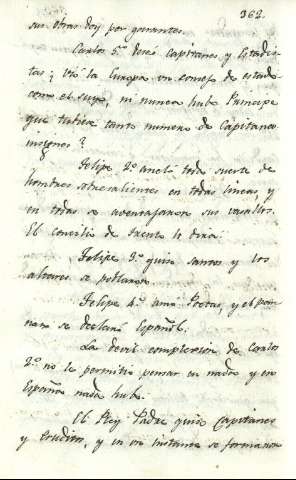 362.
sus obras doy por garantes.
Carlos 5.º deseó Capitanes y Estadis-
tas; vió la Europa un consejo de estado
como el suyo, ni nunca hubo Principe
que tubiera tanto numero de Capitanes
insignes?
Felipe 2.º aneló toda suerte de
hombres sobresalientes en todas lineas, y
en todas se aventajaron sus vasallos.
El concilio de Trento lo dirá.
Felipe 3.º quiso santos y los
altares se poblaron.
Felipe 4.º amó Poetas, y el par-
naso se declaró Español.
La devil complexion de Carlos
2.º no le permitió pensar en nada y en
España nada hubo.
El Rey Padre quiso Capitanes
y Eruditos, y en un instante se formaron